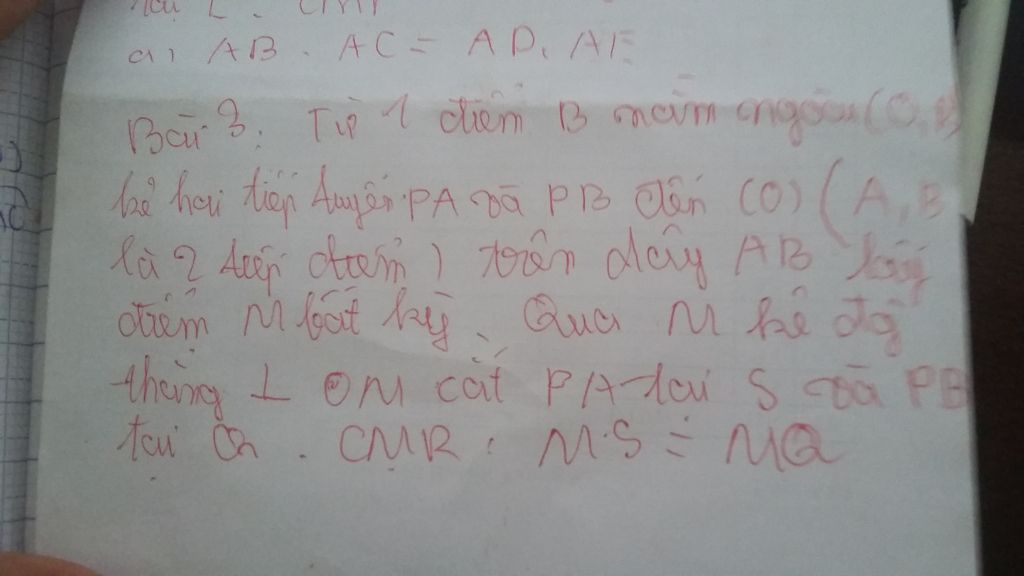 tại E. CMR
a) AB. AC = AD. AE
Bài 3: Từ 1 điểm B nằm ngoài (O, R)
kẻ hai tiếp tuyến PA và PB đến (O) (A, B
là 2 tiếp điểm) trên dây AB lấy
điểm M bất kỳ. Qua M kẻ đg
thẳng ⊥ OM cắt PA tại S và PB
tại Q. CMR: M.S = MQ